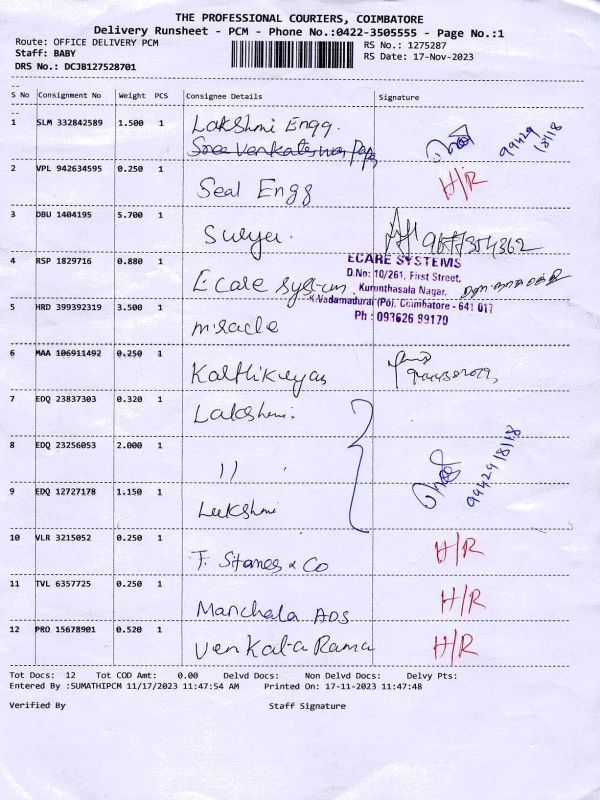 THE PROFESSIONAL COURIERS, COIMBATORE
Delivery Runsheet - PCM - Phone No.:0422-3505555 - Page No.:1
Route: OFFICE DELIVERY PCM
RS No.: 1275287
Staff: BABY
RS Date: 17-Nov-2023
DRS No.: DCJB127528701
S No Consignment No Weight PCS Consignee Details Signature
1 SLM 332842589 1.500 1 Lakshmi Engg.
99429 18118
2 VPL 942634595 0.250 1 Seal Engg H/R
3 DBU 1404195 5.700 1 Surya.
4 RSP 1829716 0.880 1 Ecare system.
ECARE SYSTEMS
D.No: 10/261, First Street,
Kurunthasala Nagar,
K.Vadamadurai (Po), Coimbatore - 641 017
Ph : 093626 89170
5 HRD 399392319 3.500 1 miracle
6 MAA 106911492 0.250 1 Karthikeyan
7 EDQ 23837303 0.320 1 Lakshmi.
8 EDQ 23256053 2.000 1 11
99429 18118
9 EDQ 12727178 1.150 1 Lukshmi
10 VLR 3215052 0.250 1 T. Stanes & Co H/R
11 TVL 6357725 0.250 1 Manchala ADS H/R
12 PRO 15678901 0.520 1 Venkata Rama H/R
Tot Docs: 12 Tot COD Amt: 0.00 Delvd Docs: Non Delvd Docs: Delvy Pts:
Entered By :SUMATHIPCM 11/17/2023 11:47:54 AM Printed On: 17-11-2023 11:47:48
Verified By Staff Signature